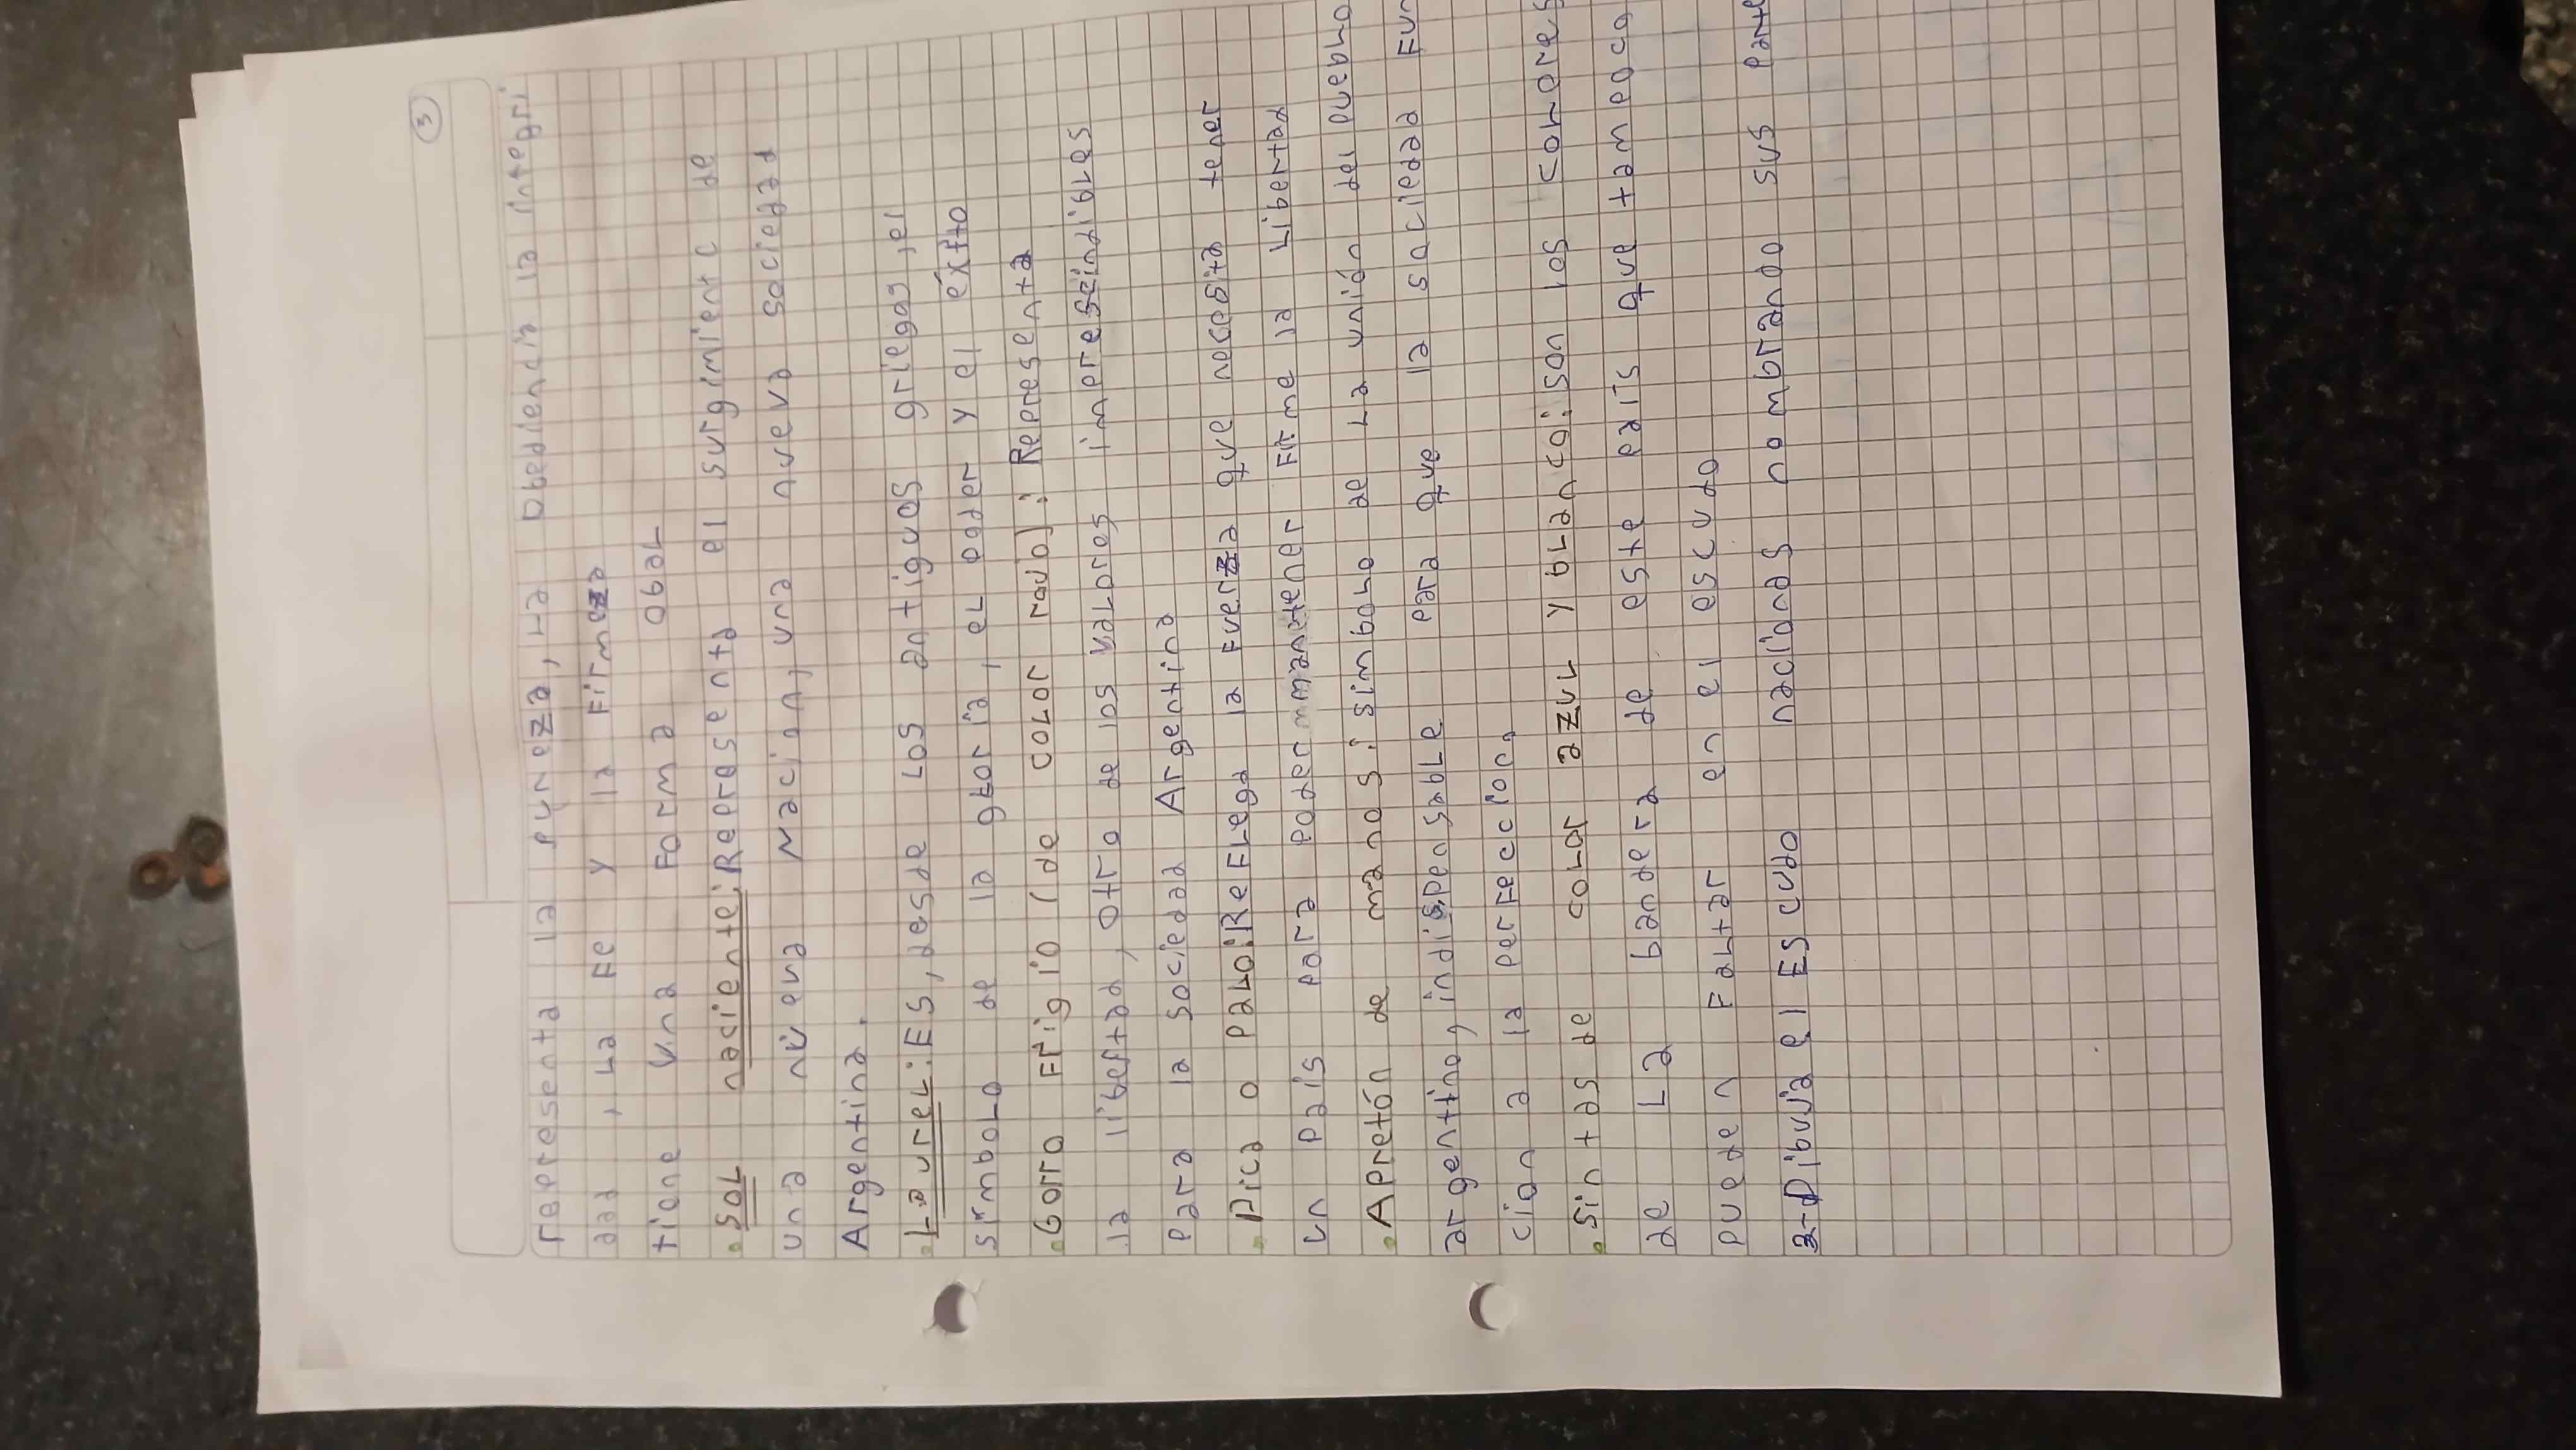 3
representa la pureza, La obediencia la integri
dad, La Fe y la Firmeza
tiene una Forma obal
. SOL naciente: Representa el surgimiento de
una nueva Nacion, una nueva sociedad
Argentina.
. Laurel: ES, desde Los antiguos griegos, el
simbolo de la gloria, el poder y el éxito
. Gorro Frigio (de color rojo): Representa
la libertad, otro de los valores impreseindibles
para la sociedad Argentina
. Pica o palo: ReFLega la Fuerza que necesita tener
un país para poder mantener Firme la Libertad
. Apretón de manos: simbolo de La unión del pueblo
argentino, indispensable para que la sociedad Fun
cion a la perfeccion.
. Sintas de color azul y blanco: son los colores
de La bandera de este pais que tampoco
pueden Faltar en el escudo
3-Dibuja el Escudo nacional nombrando sus parte